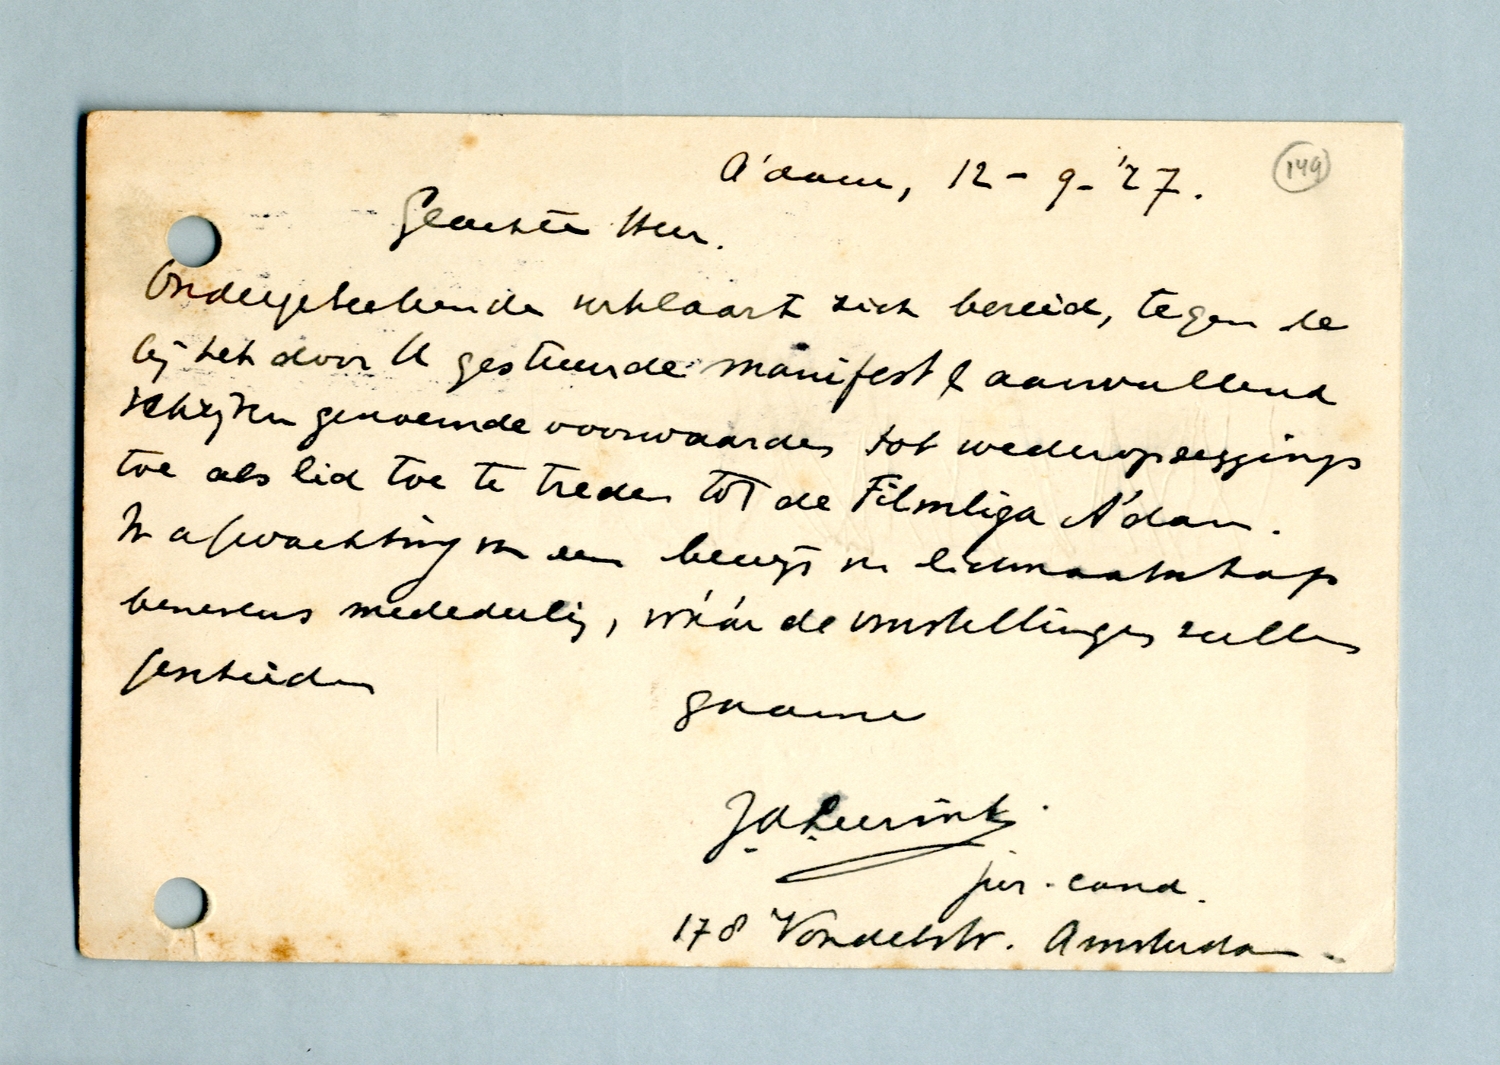 A'dam, 12-9-'27.
149
Geachte Heer.
Ondergeteekende verklaart zich bereid, tegen de
bij het door U gestuurde manifest & aanvullend
schrijven genoemde voorwaarden tot wederopzeggings
toe als lid toe te treden tot de Filmliga A'dam.
In afwachting van een bewijs van lidmaatschap
benevens mededeeling, wáár de voorstellingen zullen
geschieden
gaarne
jur. cand.
178 Vondelstr. Amsterdam.